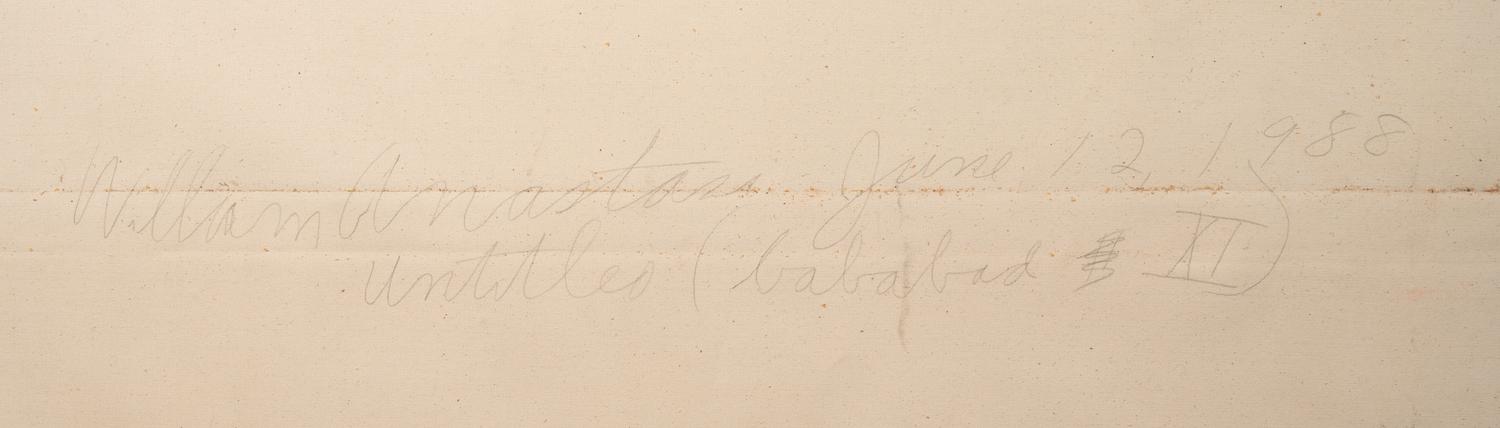 William Anastasi June 12, 1988
untitled (bababad XI)